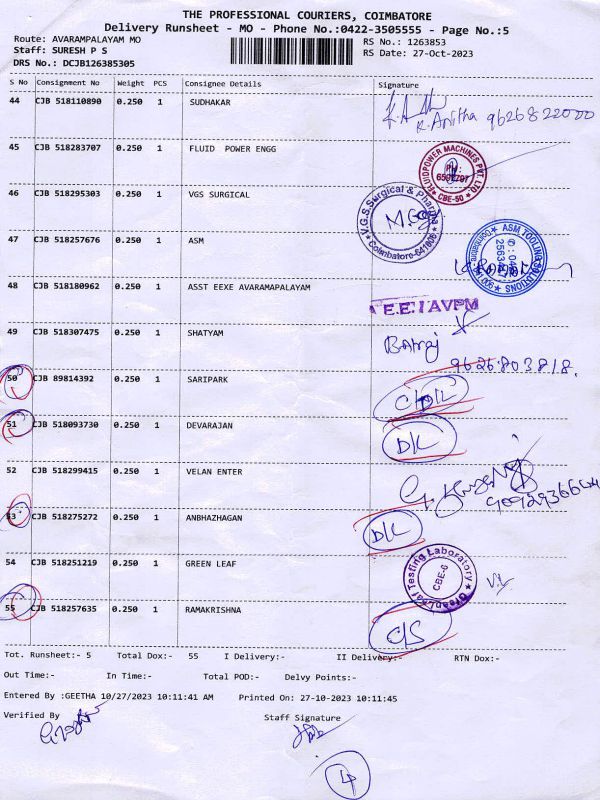 THE PROFESSIONAL COURIERS, COIMBATORE
Delivery Runsheet - MO - Phone No.:0422-3505555 - Page No.:5
Route: AVARAMPALAYAM MO
RS No.: 1263853
Staff: SURESH P S
RS Date: 27-Oct-2023
DRS No.: DCJB126385305
S No Consignment No Weight PCS Consignee Details Signature
44 CJB 518110890 0.250 1 SUDHAKAR
R. Anitha 9626822000
45 CJB 518283707 0.250 1 FLUID POWER ENGG
FLUIDPOWER MACHINES PVT. LTD. CBE-50
46 CJB 518295303 0.250 1 VGS SURGICAL
V.G.S Surgical & Pharma Coimbatore-641006
47 CJB 518257676 0.250 1 ASM
ASM TOOLING SOLUTIONS
48 CJB 518180962 0.250 1 ASST EEXE AVARAMAPALAYAM
A E.E / AVPM
49 CJB 518307475 0.250 1 SHATYAM
9626803818.
50 CJB 89814392 0.250 1 SARIPARK
51 CJB 518093730 0.250 1 DEVARAJAN
D/L
52 CJB 518299415 0.250 1 VELAN ENTER
53 CJB 518275272 0.250 1 ANBHAZHAGAN
D/L
54 CJB 518251219 0.250 1 GREEN LEAF
GreenLeaf Testing Laboratory CBE-6
55 CJB 518257635 0.250 1 RAMAKRISHNA
C/S
Tot. Runsheet:- 5 Total Dox:- 55 I Delivery:- II Delivery:- RTN Dox:-
Out Time:- In Time:- Total POD:- Delvy Points:-
Entered By :GEETHA 10/27/2023 10:11:41 AM Printed On: 27-10-2023 10:11:45
Verified By
Staff Signature
4